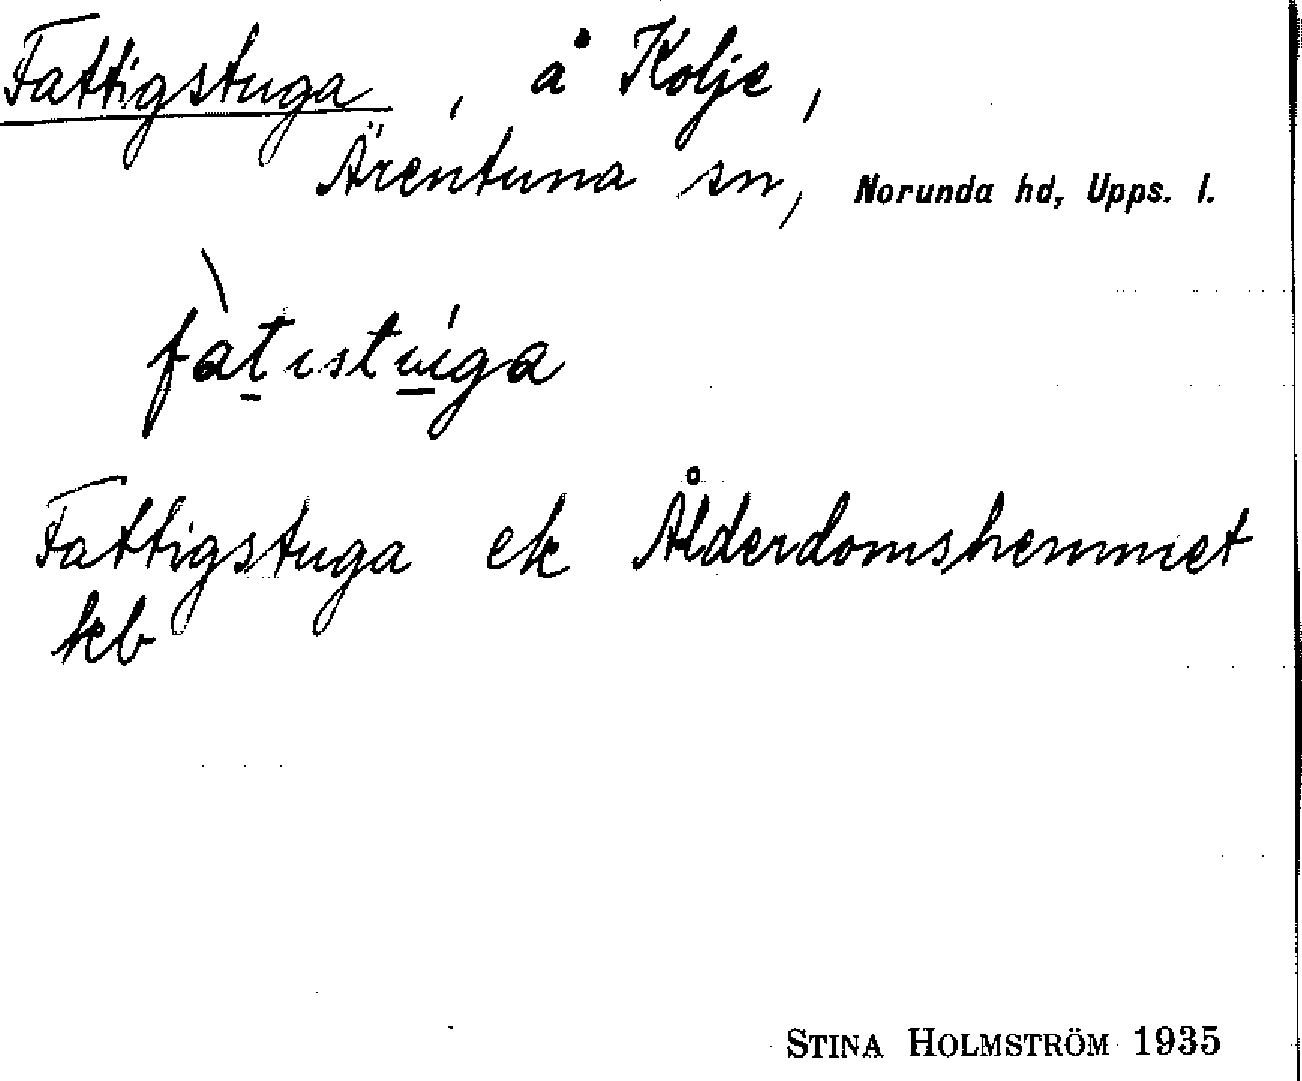 Fattigstuga, å Kolje,
Ärentuna sn, Norunda hd, Upps. l.
Fattigstuga ek Ålderdomshemmet
kb
STINA HOLMSTRÖM 1935